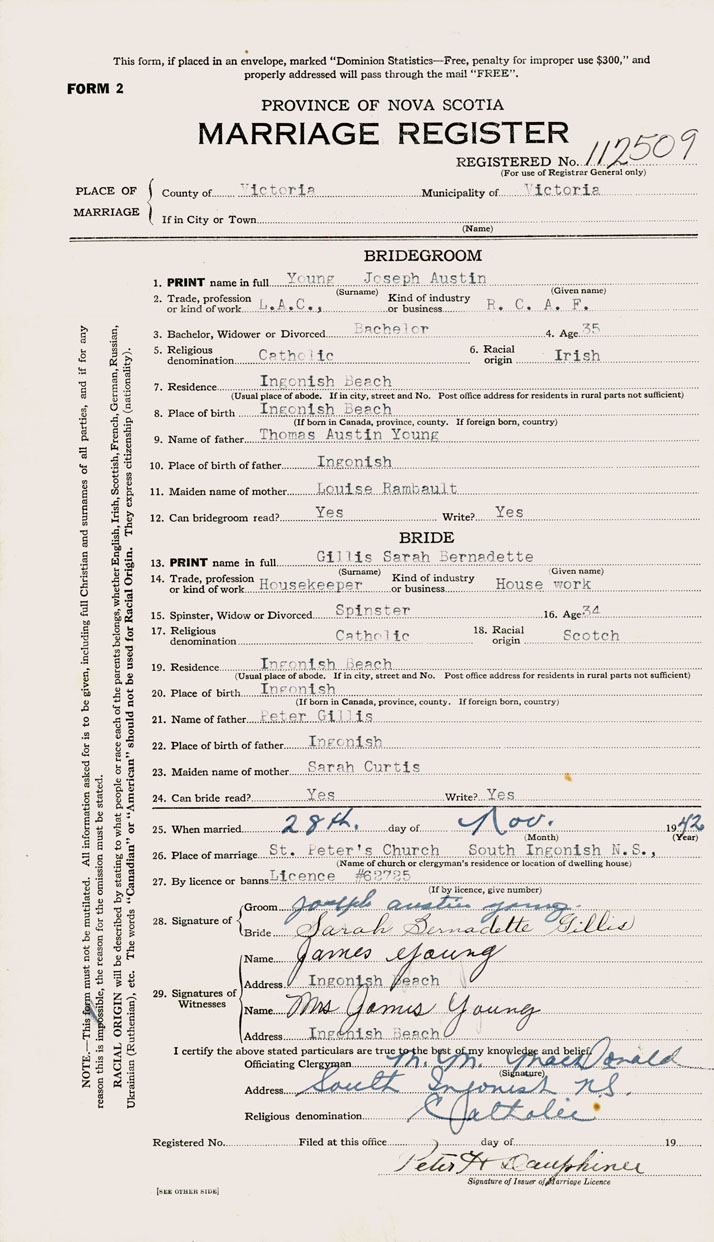 This form, if placed in an envelope, marked "Dominion Statistics—Free, penalty for improper use $300," and
properly addressed will pass through the mail "FREE".
FORM 2
PROVINCE OF NOVA SCOTIA
MARRIAGE REGISTER
REGISTERED No. 112509
(For use of Registrar General only)
PLACE OF MARRIAGE
County of Victoria Municipality of Victoria
If in City or Town
(Name)
BRIDEGROOM
1. PRINT name in full Young Joseph Austin
(Surname) (Given name)
2. Trade, profession or kind of work L.A.C., Kind of industry or business R. C. A. F.
3. Bachelor, Widower or Divorced Bachelor 4. Age 35
5. Religious denomination Catholic 6. Racial origin Irish
7. Residence Ingonish Beach
(Usual place of abode. If in city, street and No. Post office address for residents in rural parts not sufficient)
8. Place of birth Ingonish Beach
(If born in Canada, province, county. If foreign born, country)
9. Name of father Thomas Austin Young
10. Place of birth of father Ingonish
11. Maiden name of mother Louise Rambault
12. Can bridegroom read? Yes Write? Yes
BRIDE
13. PRINT name in full Gillis Sarah Bernadette
(Surname) (Given name)
14. Trade, profession or kind of work Housekeeper Kind of industry or business House work
15. Spinster, Widow or Divorced Spinster 16. Age 34
17. Religious denomination Catholic 18. Racial origin Scotch
19. Residence Ingonish Beach
(Usual place of abode. If in city, street and No. Post office address for residents in rural parts not sufficient)
20. Place of birth Ingonish
(If born in Canada, province, county. If foreign born, country)
21. Name of father Peter Gillis
22. Place of birth of father Ingonish
23. Maiden name of mother Sarah Curtis
24. Can bride read? Yes Write? Yes
25. When married 28th. day of Nov. 1942
(Month) (Year)
26. Place of marriage St. Peter's Church South Ingonish N.S.,
(Name of church or clergyman's residence or location of dwelling house)
27. By licence or banns Licence #62725
(If by licence, give number)
28. Signature of
Groom Joseph austin young.
Bride Sarah Bernadette Gillis
29. Signatures of Witnesses
Name James Young
Address Ingonish Beach
Name Mrs James Young
Address Ingonish Beach
I certify the above stated particulars are true to the best of my knowledge and belief.
Officiating Clergyman M. M. MacDonald
(Signature)
Address South Ingonish N.S.
Religious denomination Catholic
Registered No. Filed at this office day of 19
Peter H Dauphinee
Signature of Issuer of Marriage Licence
[SEE OTHER SIDE]
NOTE.—This form must not be mutilated. All information asked for is to be given, including full Christian and surnames of all parties, and if for any
reason this is impossible, the reason for the omission must be stated.
RACIAL ORIGIN will be described by stating to what people or race each of the parents belongs, whether English, Irish, Scottish, French, German, Russian,
Ukrainian (Ruthenian), etc. The words "Canadian" or "American" should not be used for Racial Origin. They express citizenship (nationality).